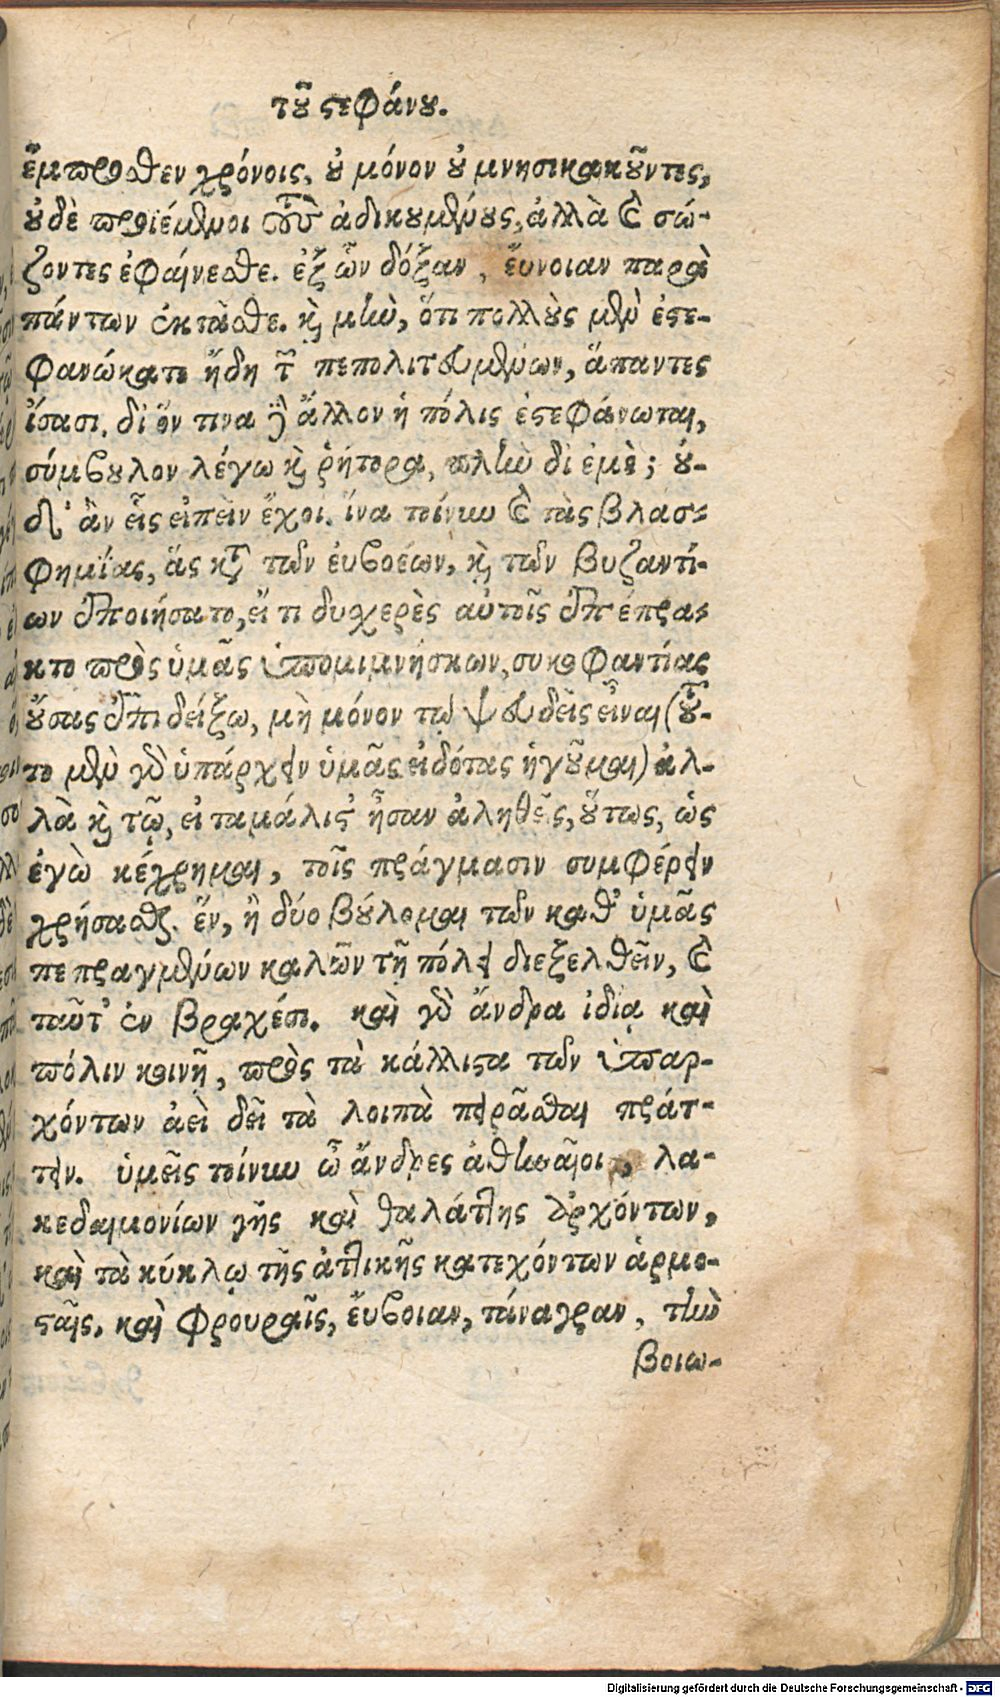 τοῦ στεφάνου.
ἔμπροσθεν χρόνοις, οὐ μόνον οὐ μνησικακοῦντες,
οὐδὲ προϊέμενοι τοὺς ἀδικουμένους, ἀλλὰ καὶ σώ-
ζοντες ἐφαίνεσθε. ἐξ ὧν δόξαν, εὔνοιαν παρὰ
πάντων ἐκτᾶσθε. καὶ μὴν, ὅτι πολλοὺς μὲν ἐστε-
φανώκατε ἤδη τῶν πεπολιτευμένων, ἅπαντες
ἴσασι. δι' ὅν τινα δὲ ἄλλον ἡ πόλις ἐστεφάνωται,
σύμβουλον λέγω καὶ ῥήτορα, πλὴν δι' ἐμὲ; οὐ-
δ' ἂν εἷς εἰπεῖν ἔχοι. ἵνα τοίνυν καὶ τὰς βλασ-
φημίας, ἃς κατὰ τῶν ἐυβοέων, καὶ τῶν βυζαντί-
ων ἐποιήσατο, εἴ τι δυχερὲς αὐτοῖς ἐπέπρα-
κτο πρὸς ὑμᾶς ὑπομιμνήσκων, συκοφαντίας
οὔσας ἐπιδείξω, μὴ μόνον τῷ ψευδεῖς εἶναι (τοῦ-
το μὲν γὰρ ὑπάρχειν ὑμᾶς εἰδότας ἡγοῦμαι) ἀλ-
λὰ καὶ τῷ, εἰ ταμάλιστ' ἦσαν ἀληθεῖς, οὕτως, ὡς
ἐγὼ κέχρημαι, τοῖς πράγμασιν συμφέρειν
χρήσασθαι. ἕν, ἢ δύο βούλομαι τῶν καθ' ὑμᾶς
πεπραγμένων καλῶν τῇ πόλει διεξελθεῖν, καὶ
ταῦτ' ἐν βραχέσι. καὶ γὰρ ἄνδρα ἰδίᾳ καὶ
πόλιν κοινῇ, πρὸς τὰ κάλλιστα τῶν ὑπαρ-
χόντων ἀεὶ δεῖ τὰ λοιπὰ πειρᾶσθαι πράτ-
τειν. ὑμεῖς τοίνυν ὦ ἄνδρες ἀθηναῖοι, λα-
κεδαιμονίων γῆς καὶ θαλάττης ἀρχόντων,
καὶ τὰ κύκλῳ τῆς ἀττικῆς κατεχόντων ἁρμο-
σταῖς, καὶ φρουραῖς, ἔυβοιαν, τάναγραν, τὴν
βοιω-
Digitalisierung gefördert durch die Deutsche Forschungsgemeinschaft - DFG